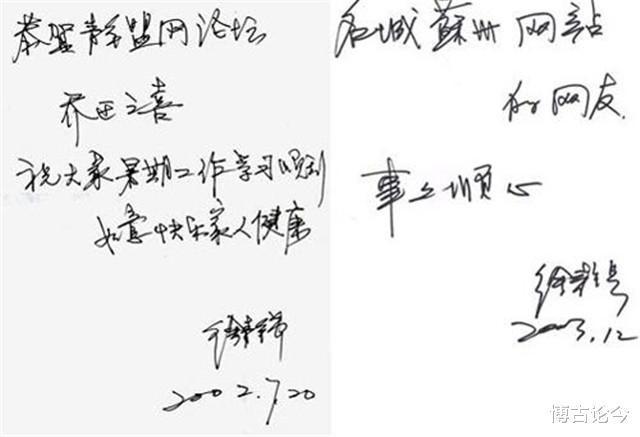 恭贺 盟网论坛
乔迁之喜
祝大家暑期工作学习顺利
如意快乐家人健康
2002.7.20
名城蘇州网站
的网友
事事顺心
2003.12
博古论今